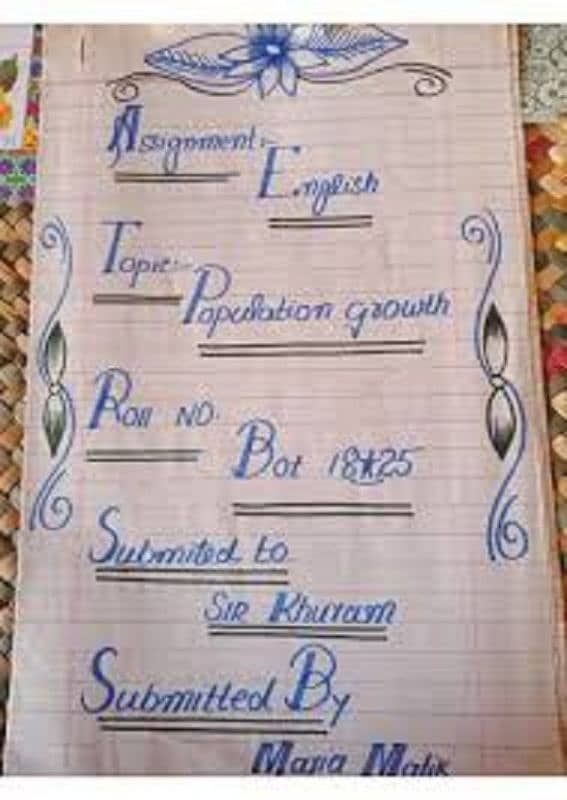 Assignment:-
English
Topic:-
Population growth
Roll NO.
Bot 18
25
Submited to
SIR Khuram
Submitted By
Maria Malik